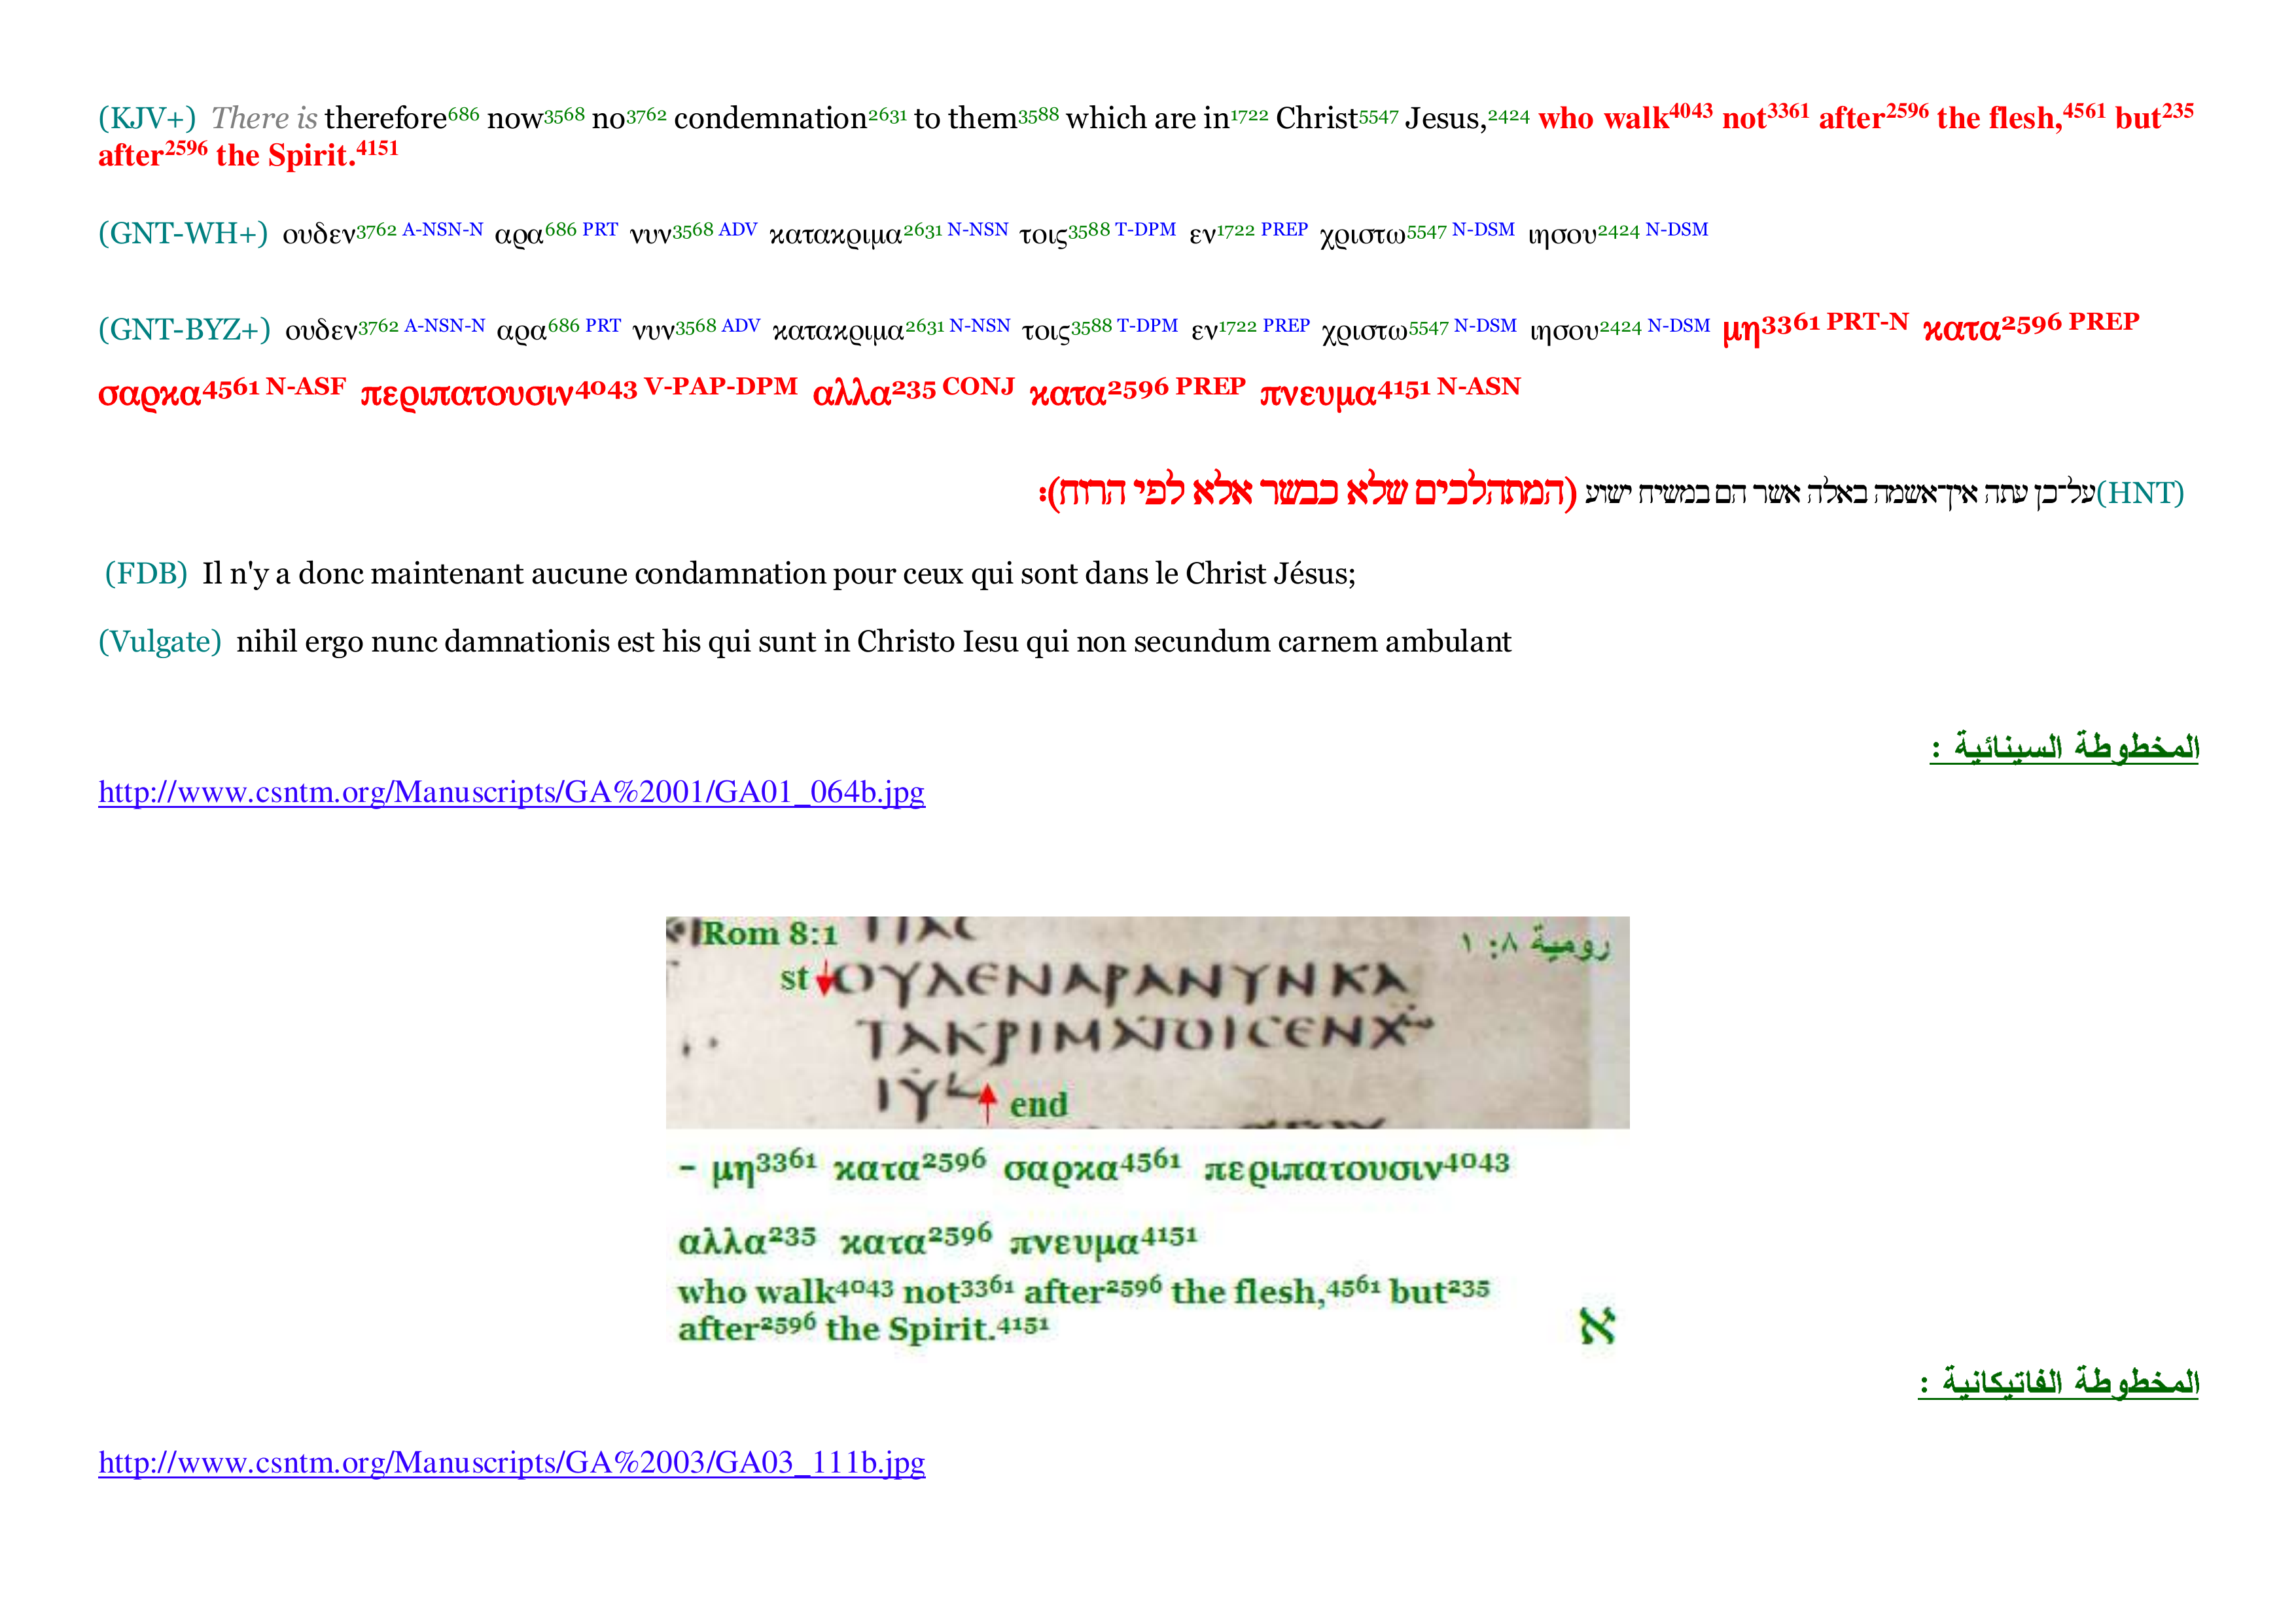 (KJV+) There is therefore686 now3568 no3762 condemnation2631 to them3588 which are in1722 Christ5547 Jesus,2424 who walk4043 not3361 after2596 the flesh,4561 but235
after2596 the Spirit.4151
(GNT-WH+) ουδεν3762 A-NSN-N αρα686 PRT νυν3568 ADV κατακριμα2631 N-NSN τοις3588 T-DPM εν1722 PREP χριστω5547 N-DSM ιησου2424 N-DSM
(GNT-BYZ+) ουδεν3762 A-NSN-N αρα686 PRT νυν3568 ADV κατακριμα2631 N-NSN τοις3588 T-DPM εν1722 PREP χριστω5547 N-DSM ιησου2424 N-DSM μη3361 PRT-N κατα2596 PREP
σαρκα4561 N-ASF περιπατουσιν4043 V-PAP-DPM αλλα235 CONJ κατα2596 PREP πνευμα4151 N-ASN
(HNT) על־כן עתה אין־אשמה באלה אשר הם במשיח ישוע (המתהלכים שלא כבשר אלא לפי הרוח):
(FDB) Il n'y a donc maintenant aucune condamnation pour ceux qui sont dans le Christ Jésus;
(Vulgate) nihil ergo nunc damnationis est his qui sunt in Christo Iesu qui non secundum carnem ambulant
المخطوطة السينائية :
http://www.csntm.org/Manuscripts/GA%2001/GA01_064b.jpg
Rom 8:1 رومية ٨: ١
st ΟΥΔΕΝΑΡΑΝΥΝΚΑ
ΤΑΚΡΙΜΑΤΟΙCΕΝΧΩ
ΙΥ end
– μη3361 κατα2596 σαρκα4561 περιπατουσιν4043
αλλα235 κατα2596 πνευμα4151
who walk4043 not3361 after2596 the flesh,4561 but235
after2596 the Spirit.4151 א
المخطوطة الفاتيكانية :
http://www.csntm.org/Manuscripts/GA%2003/GA03_111b.jpg